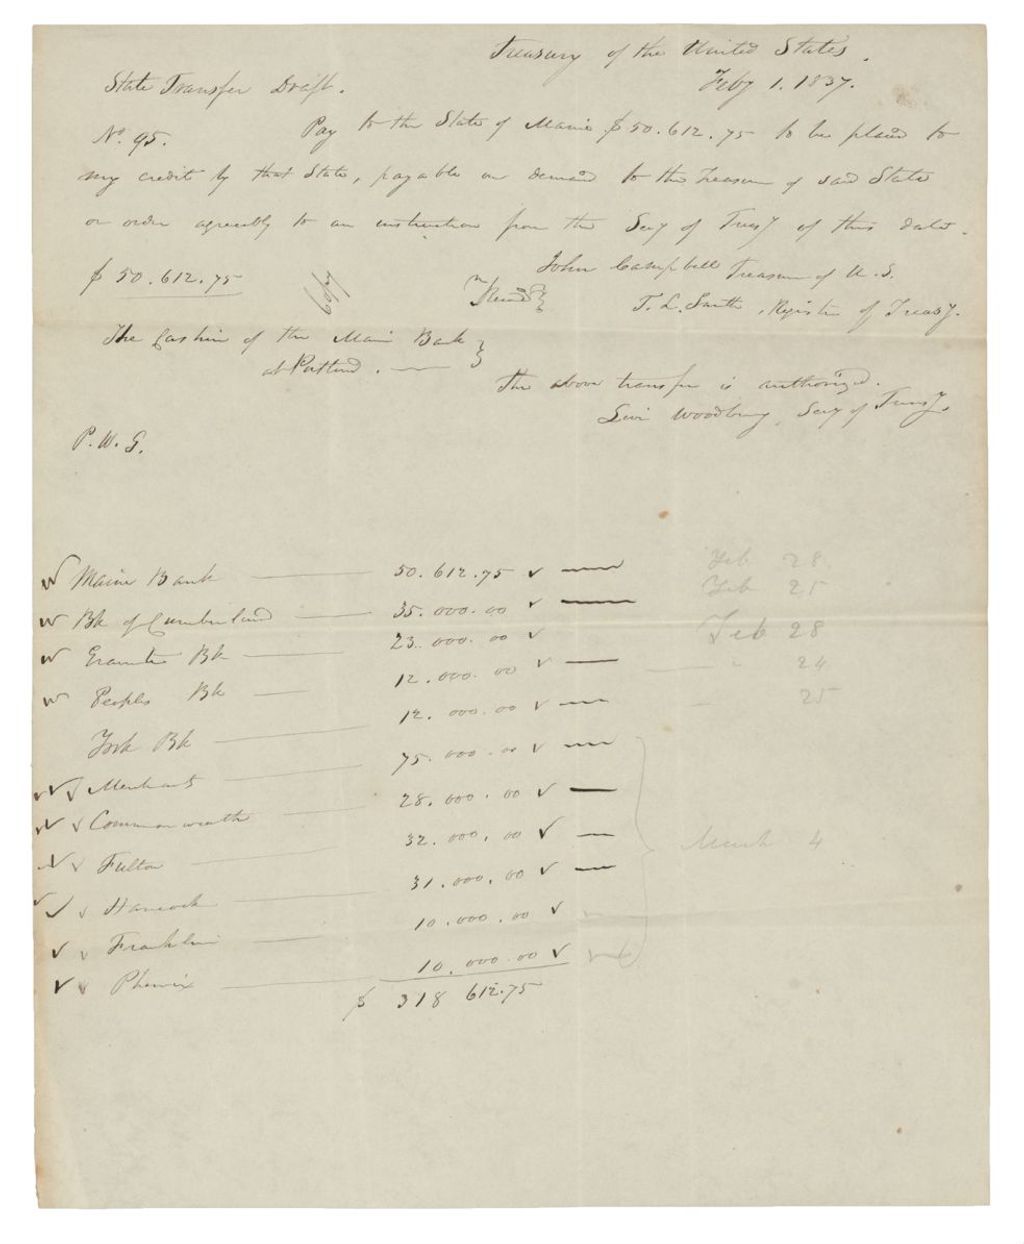 Treasury of the United States.
Feby 1. 1837.
State Transfer Draft.
No. 95. Pay to the State of Maine $50.612.75 to be placed to
my credit by that State, payable on demand to the Treasurer of said State
or order agreeably to an instruction from the Secy of Treasy of this date.
John Campbell Treasurer of U.S.
$50.612.75
Copy
T. L. Smith, Register of Treasy.
The Cashier of the Maine Bank
at Portland.
The above transfer is authorized.
Levi Woodbury, Secy of Treasy.
P. W. G.
Maine Bank 50.612.75 Feb 28
Bk of Cumberland 35.000.00 Feb 25
Granite Bk 23.000.00 Feb 28
Peoples Bk 12.000.00 " 24
York Bk 12.000.00 25
Merchants 75.000.00
Commonwealth 28.000.00
Fulton 32.000.00 March 4
Hancock 31.000.00
Franklin 10.000.00
Phenix 10.000.00
$ 318 612.75